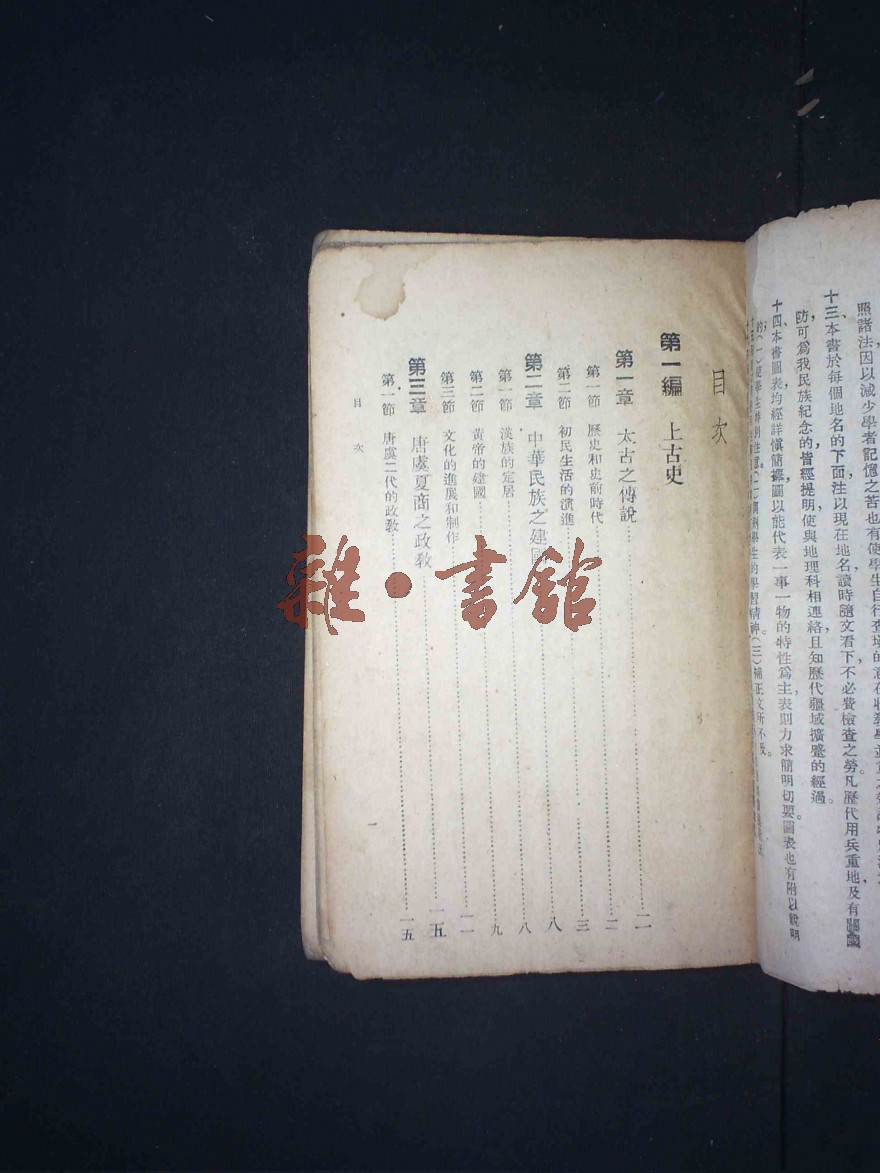 照諸法因以減少學者記憶之苦也有使學生自行查填的意在收教學並重之效
十三、本書於每個地名的下面注以現在地名讀時隨文看下不必費檢查之勞凡歷代用兵重地及有關國
防可爲我民族紀念的皆經提明使與地理科相連絡且知歷代疆域擴蹙的經過。
十四、本書圖表均經詳愼簡擇圖以能代表一事一物的特性爲主表則力求簡明切要圖表也有附以說明
的(一)使學生特別注意。(二)學生的學習精神(三)補正文所不及。
目次
第一編 上古史
第一章 太古之傳說 二
第一節 歷史和史前時代 二
第二節 初民生活的演進 三
第二章 中華民族之建國 八
第一節 漢族的定居 八
第二節 黃帝的建國 九
第三節 文化的進展和制作 一一
第三章 唐虞夏商之政敎 一五
第一節 唐虞二代的政敎 一五
目次 一
雜·書館